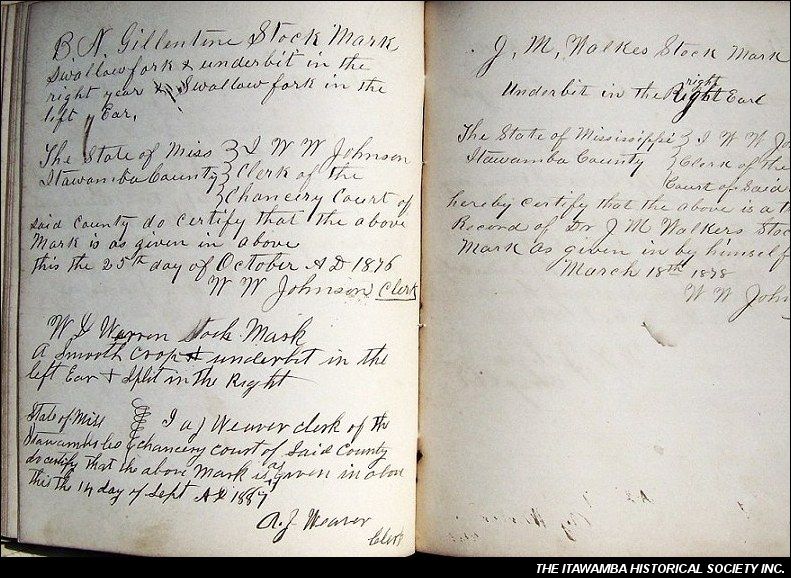 B. N. Gillentine Stock Mark
Swallowfork & underbit in the
right year & Swallow fork in the
left Ear,
The State of Miss } I W W Johnson
Itawamba County } Clerk of the
} Chancery Court of
said County do certify that the above
Mark is as given in above
this the 25th day of October A D 1876
W W Johnson Clerk
W. Warren Stock Mark
A Smooth Crop & underbit in the
left Ear & Split in the Right
State of Miss } I a J Weaver clerk of the
Itawamba Co } chancery court of Said County
do certify that the above Mark is as given in above
this the 14 day of Sept AD 1887
A. J. Weaver
Clerk
J, M, Walkes Stock Mark
right
Underbit in the Right Ear
The State of Mississippi } I W W Jo
Itawamba County } Clerk of the
Court of Said
hereby certify that the above is a t
Record of Dr J M Walkers Stoc
Mark as given in by himself
March 18th 1878
W W John
THE ITAWAMBA HISTORICAL SOCIETY INC.